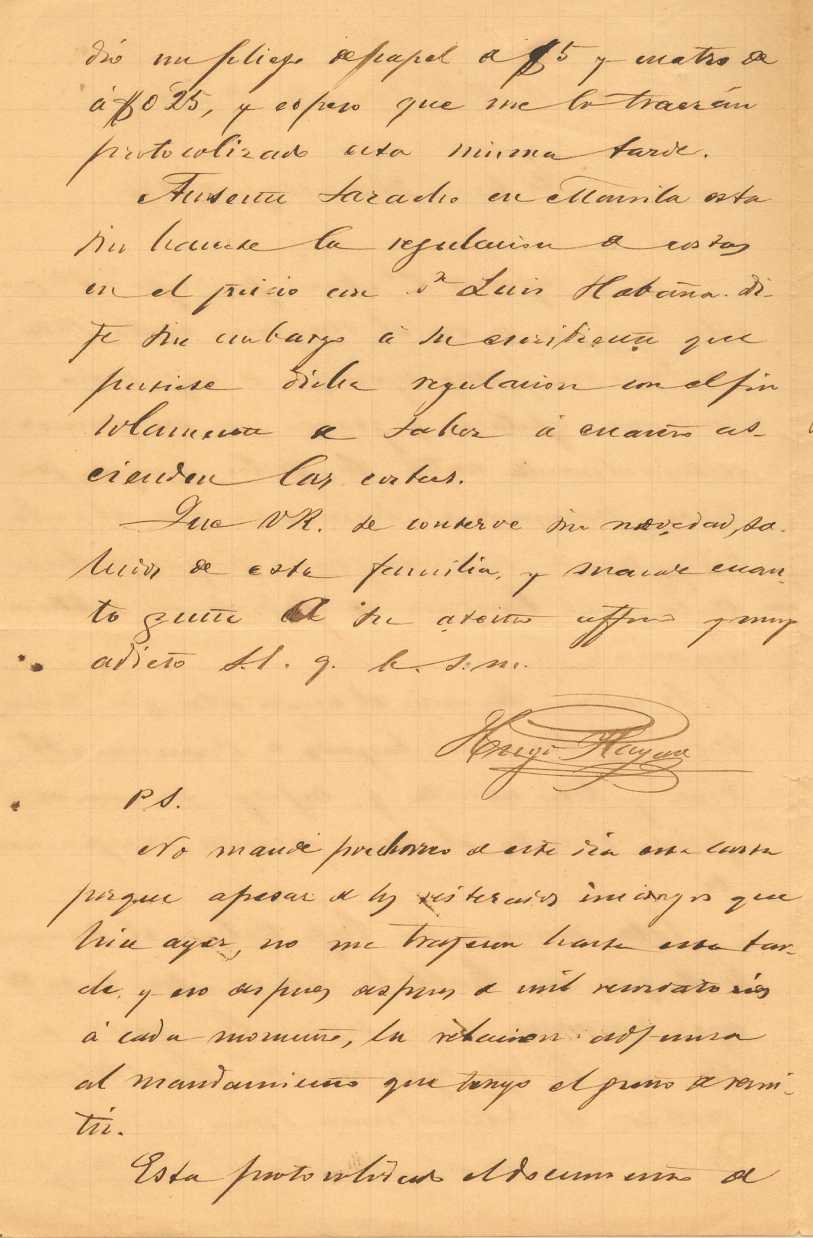 dió un pliego de papel de $5 y cuatro de
á $0 25, y espero que me lo traerán
protocolizado esta misma tarde.
Ausente Saracho en Manila esta
sin hacerse la regulacion de costas
en el juicio con Dn Luis Habaña. di-
je sin embargo á su escribiente que
pusiese dicha regulacion con el fin
solamente de saber á cuanto as-
cienden las costas.
Que VR. se conserve sin novedad, sa-
ludos de esta familia, y mande cuan-
to guste de su atento affmo y muy
adicto S.S. q. b. s. m.
Hugo
P S.
No mandé por correo de este dia esta carta
porque apesar de los reiterados encargos que
hice ayer, no me trajeron hasta esta tar-
de, y eso despues despues de mil recordatorios
á cada momento, la relacion adjunta
al mandamiento que tengo el gusto de remi-
tir.
Esta protocolizado el documento de